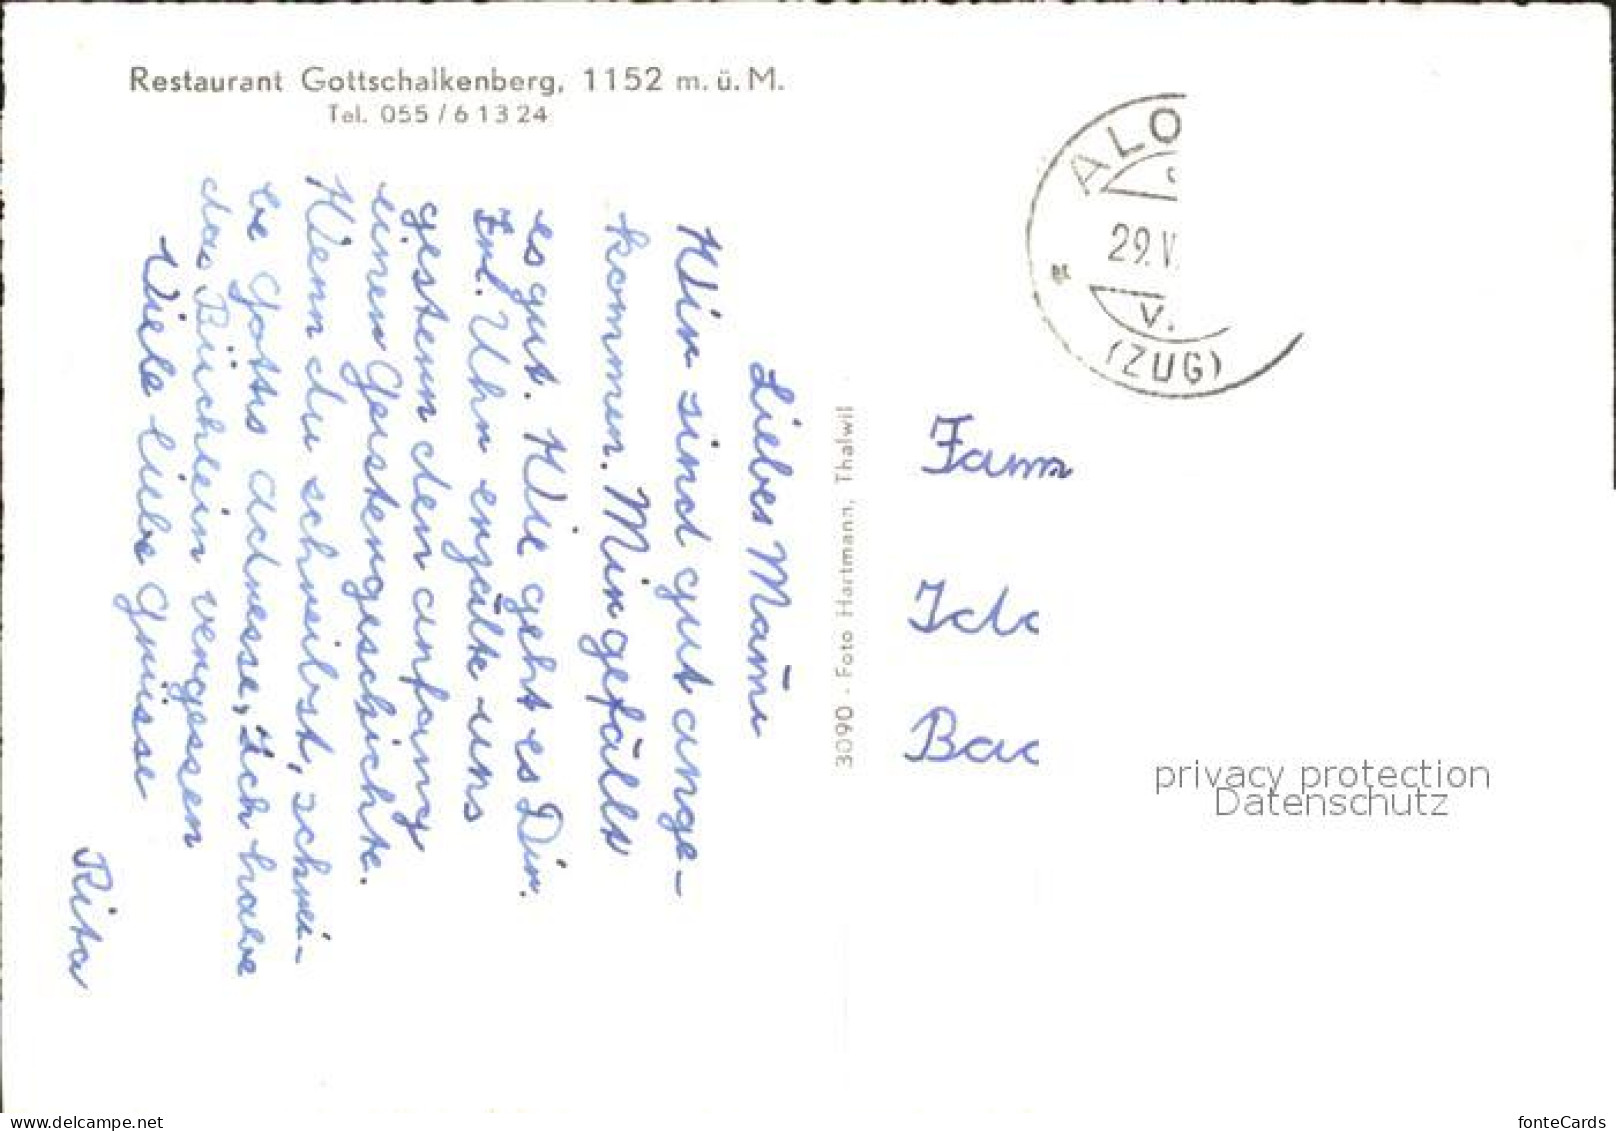 Restaurant Gottschalkenberg, 1152 m. ü. M.
Tel. 055 / 6 13 24
Liebes Mami
Wir sind gut ange-
kommen. Mir gefällt
es gut. Wie geht es Dir.
Frl. Uhr erzälte uns
gestern den anfang
einer Geistergeschichte.
Wenn du schreibst, schrei-
be Gotts adresse, Ich habe
das Büchlein vergessen
Viele liebe Grüsse
Rita
3090 - Foto Hartmann, Thalwil
ALO
29. V
V.
(ZUG)
Fam
Ida
Bac
privacy protection
Datenschutz
www.delcampe.net
fonteCards